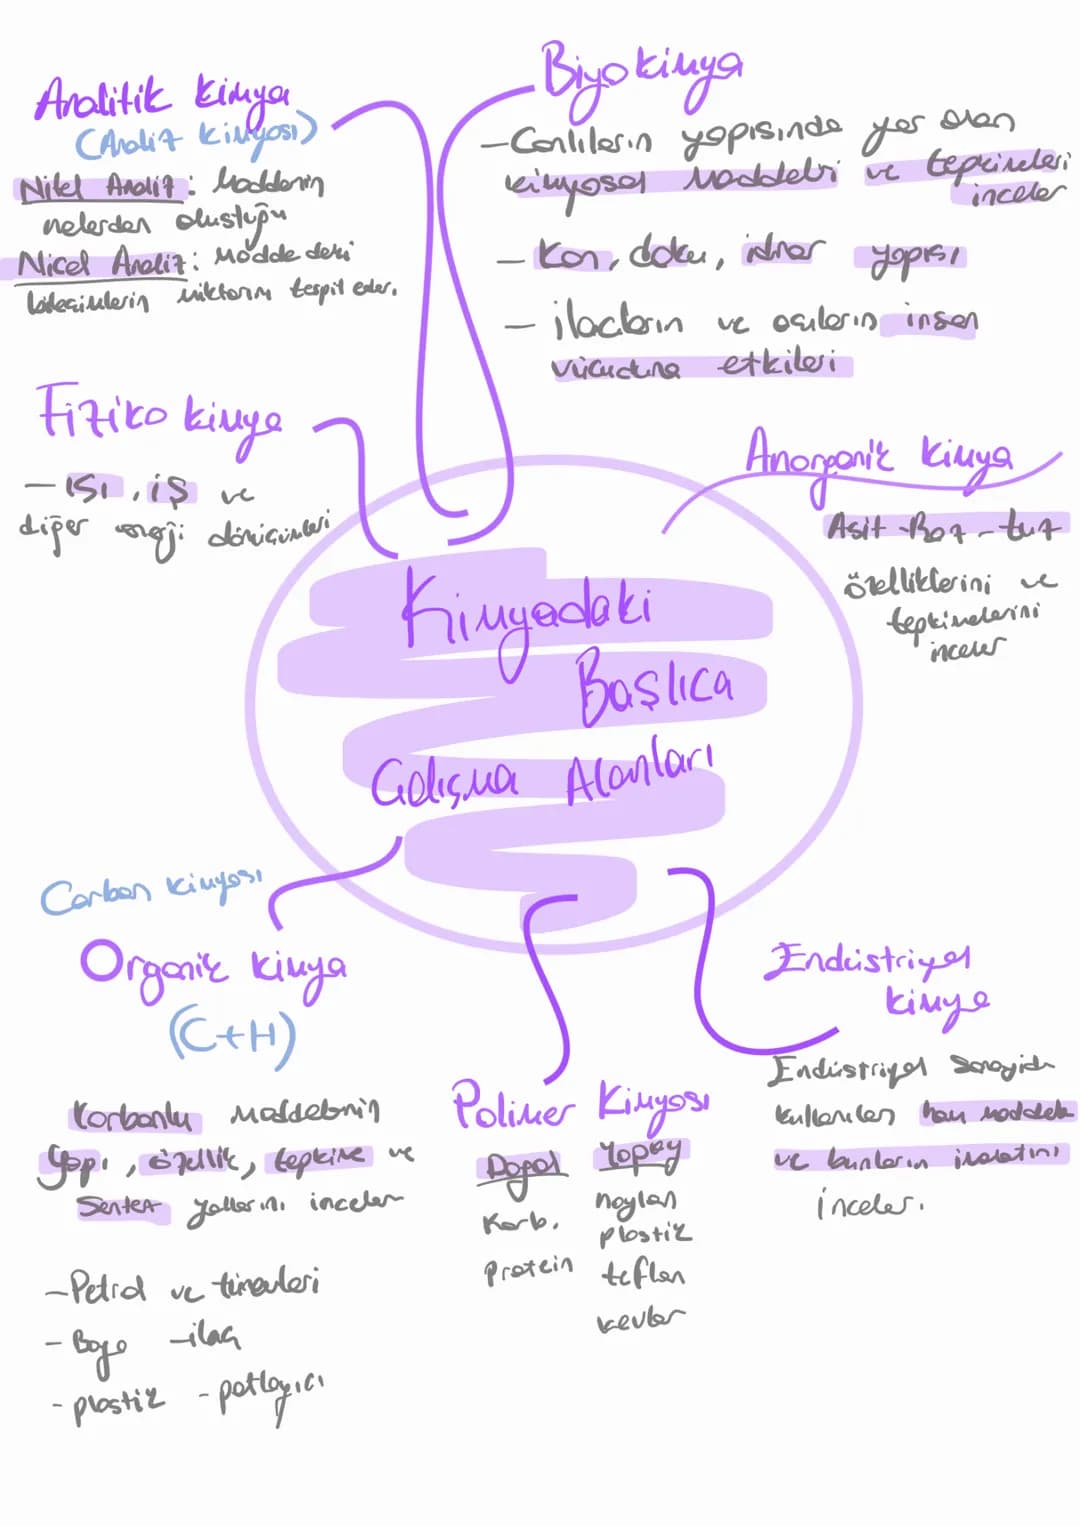 Analitik Kimya
(Analiz Kimyası)
Nitel Analiz: Maddenin
nelerden oluştuğu
Nicel Analiz: Maddedeki
bileşimlerin miktarını tespit eder.
Biyokimya
-Canlıların yapısında yer alan
kimyasal maddeleri ve tepkimeleri
inceler
- Kan, doku, idrar yapısı
- ilaçların ve aşıların insan
vücuduna etkileri
Fiziko kimya
- ısı, iş ve
diğer enerji dönüşümleri
Anorganik kimya
Asit-Baz-tuz
özelliklerini ve
tepkimelerini
inceler
Kimyadaki
Başlıca
Çalışma Alanları
Carbon kimyası
Organik kimya
(C+H)
Karbonlu maddelerin
yapı, özellik, tepkime ve
Sentez yollarını inceler
-Petrol ve türevleri
- Boya -ilaç
- plastik - patlayıcı
Polimer Kimyası
Doğal Yapay
Karb. naylon
protein plastik
teflon
kevlar
Endüstriyel
kimya
Endüstriyel sanayide
kullanılan ham madde
ve bunların imalatını
inceler.